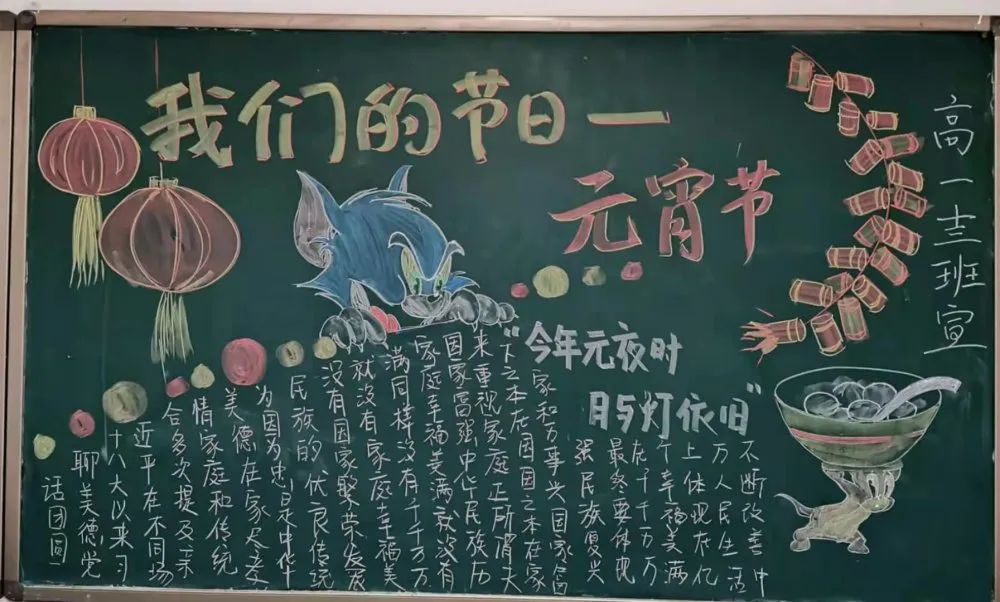 我们的节日一
元宵节
高一十三班宣
"今年元夜时
月与灯依旧"
话团圆
聊美德党
十八大以来习
近平在不同场
合多次提及亲
情家庭和传统
美德在家尽孝
为国尽忠是中华
民族的优良传统
没有国家繁荣发展
就没有家庭幸福美
满同样没有千千万万
家庭幸福美满就没有
国家富强中华民族历
来重视家庭正所谓天
下之本在国国之本在家
家和万事兴国家富
强民族复兴
最终要体现
在千千万万
个幸福美满
上体现在亿
万人民生活
不断改善中